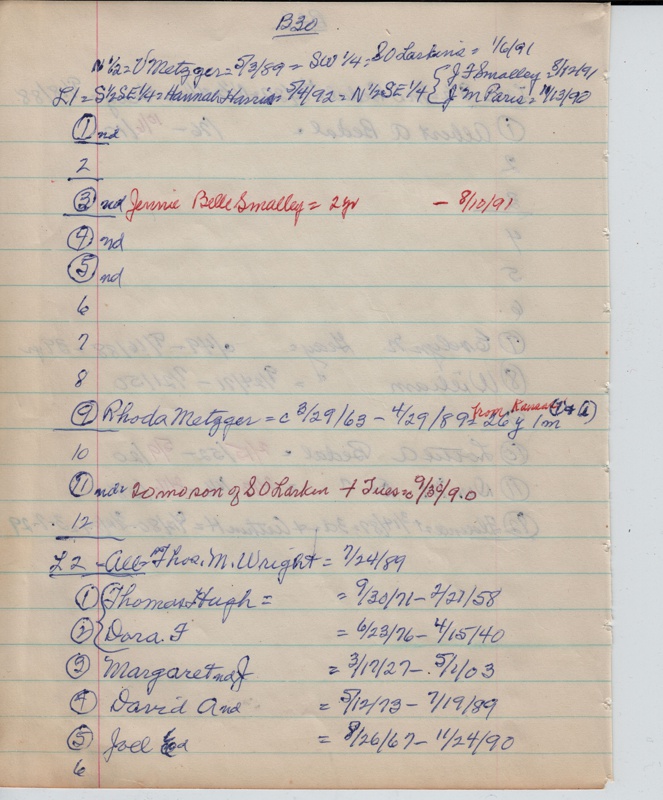 B30
N 1/2 = V Metzger = 5/3/89 = SW 1/4 = S O Larkins = 1/6/91
{ J F Smalley = 8/12/91
L1 = S 1/2 SE 1/4 = Hannah Harris 5/4/92 = N 1/2 SE 1/4 { J M Paris = 11/13/90
1 nd
2
3 nd Jennie Belle Smalley = 2 yr - 8/10/91
4 nd
5 nd
6
7
8
9 Rhoda Metzger = c 3/29/63 - 4/29/89 = 26 y 1 m from Kansas
10
11 nd 20 mo son of S O Larkin + 9/30/90
12
L2 - All Thos. M. Wright = 7/24/89
1 { Thomas Hugh = = 9/30/71 - 2/21/58
2 { Dora. F = 6/23/76 - 4/15/40
3 Margaret nd J = 3/17/27 - 5/1/03
4 David A nd = 5/12/73 - 7/19/89
5 Joel = 8/26/67 - 11/24/90
6